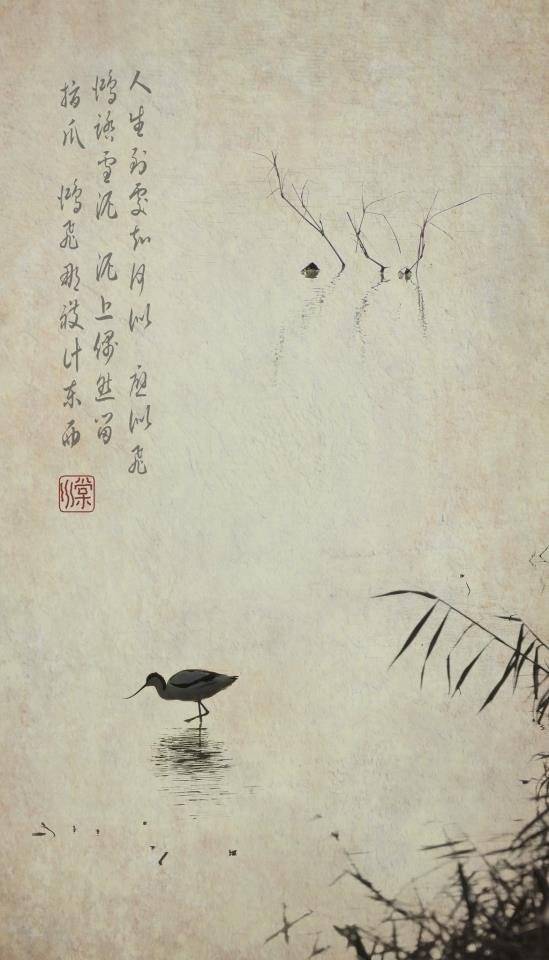 人生到处知何似 应似飞
鸿踏雪泥 泥上偶然留
指爪 鸿飞那复计东西
棠